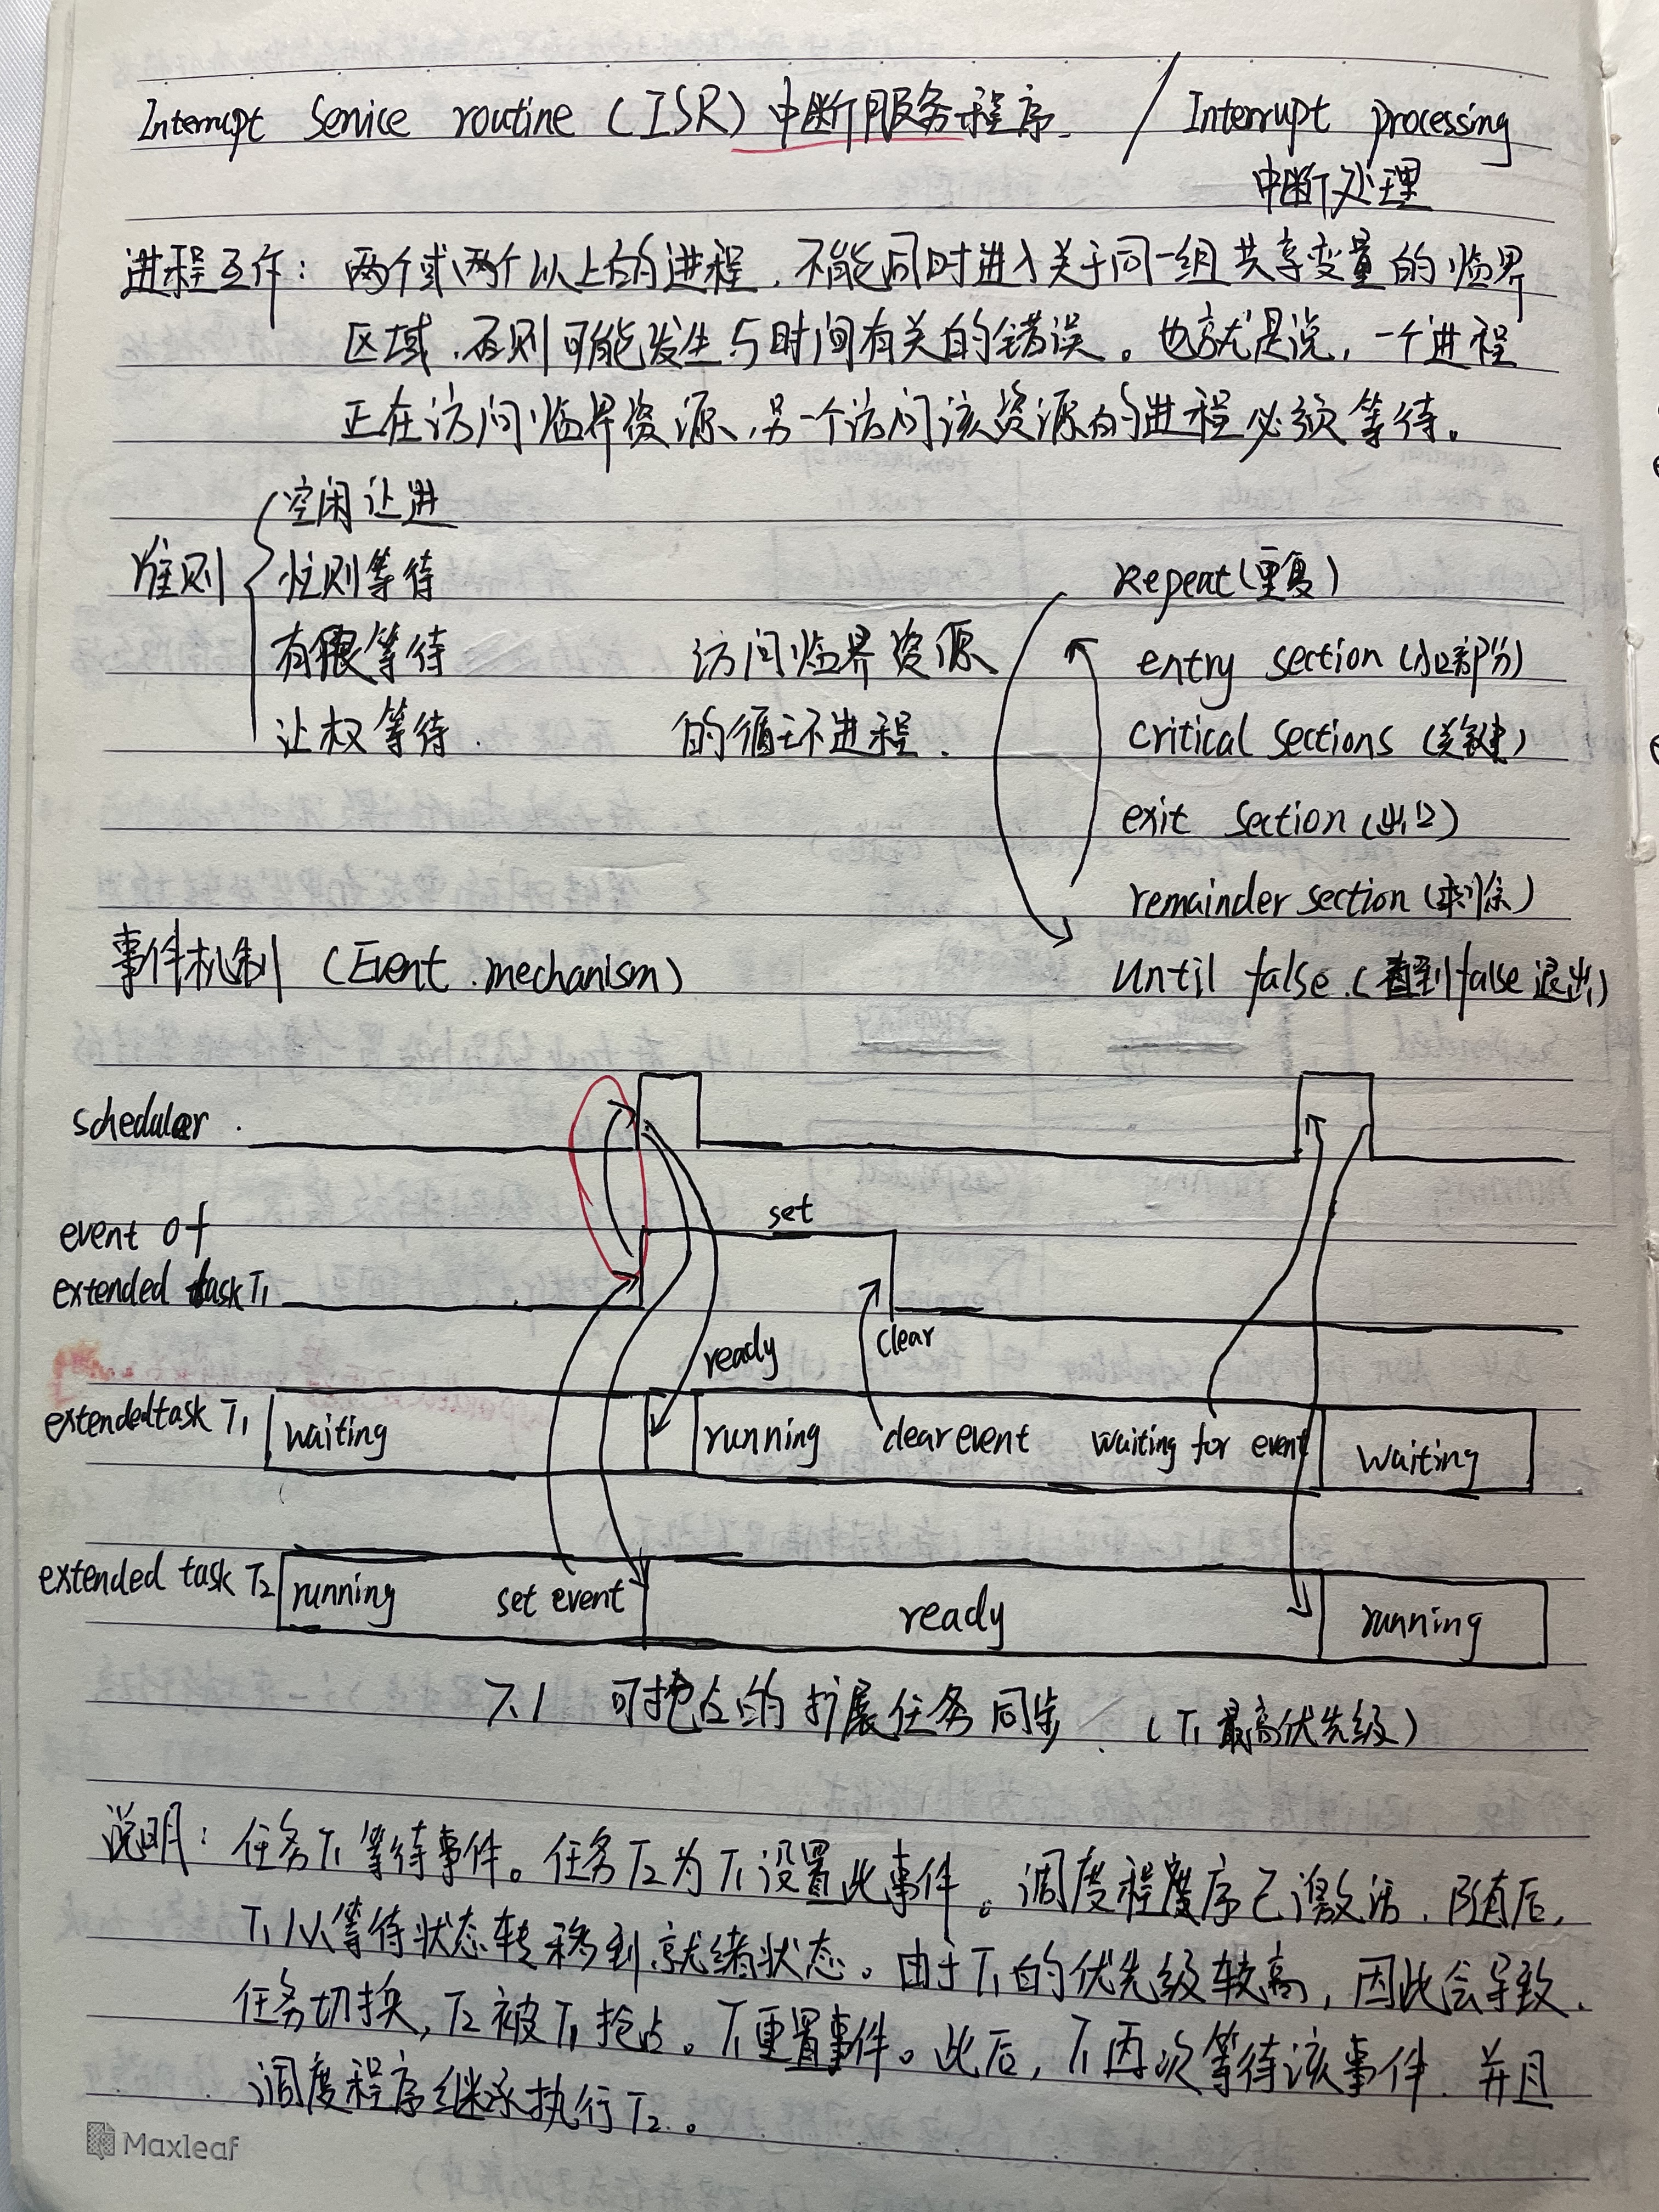 Interrupt Service routine (ISR) 中断服务程序. / Interrupt processing
中断处理
进程互作: 两个或两个以上的进程, 不能同时进入关于同一组共享变量的临界
区域, 否则可能发生与时间有关的错误。也就是说, 一个进程
正在访问临界资源, 另一个访问该资源的进程必须等待。
准则
空闲让进
忙则等待
有限等待
让权等待.
访问临界资源
的循环进程.
Repeat(重复)
entry section (入口部分)
critical sections (关键)
exit section (出口)
remainder section ()
Until false. (直到false退出)
事件机制 (Event mechanism)
scheduler.
event of
extended task T1
set
clear
ready
extended task T1
waiting
running
clear event
waiting for event
waiting
extended task T2
running
set event
ready
running
7.1 可抢占的扩展任务同步. (T1最高优先级)
说明: 任务T1等待事件。任务T2为T1设置此事件。调度程序已激活. 随后,
T1从等待状态转移到就绪状态。由于T1的优先级较高, 因此会导致
任务切换, T2被T1抢占。T1重置事件。此后, T1再次等待该事件. 并且
调度程序继承执行T2.。
Maxleaf